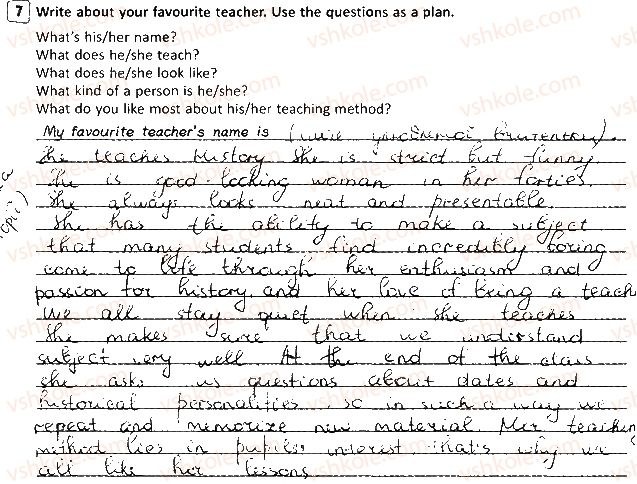 7 Write about your favourite teacher. Use the questions as a plan.
What's his/her name?
What does he/she teach?
What does he/she look like?
What kind of a person is he/she?
What do you like most about his/her teaching method?
My favourite teacher's name is
She teaches History She is strict but funny
She is good-looking woman in her forties.
She always looks neat and presentable.
She has the ability to make a subject
that many students find incredibly boring
come to life through her enthusiasm and
passion for history and her love of being a teach
We all stay quiet when she teaches
She makes sure that we understand
subject very well At the end of the class
she asks us questions about dates and
historical personalities so in such a way we
repeat and memorize new material. Her teaching
method lies in pupils' interest that's why we
all like her lessons